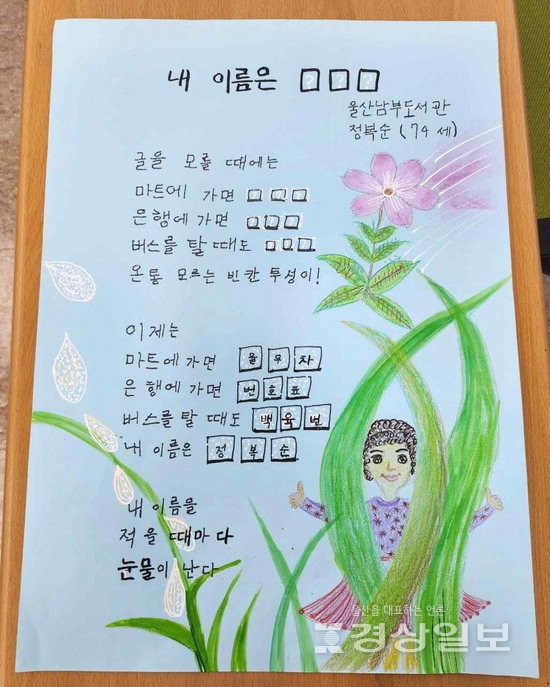 내 이름은 □□□
울산남부도서관
정복순 (74세)
글을 모를 때에는
마트에 가면 □□□
은행에 가면 □□□
버스를 탈 때도 □□□
온통 모르는 빈칸 투성이!
이제는
마트에 가면 율무차
은행에 가면 번호표
버스를 탈 때도 백육번
내 이름은 정복순
내 이름을
적을 때마다
눈물이 난다
울산을 대표하는 언론
경상일보